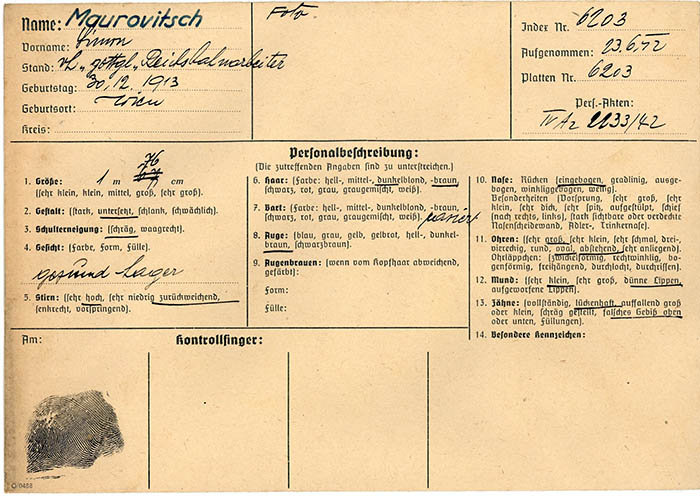 Name: Maurovitsch
Vorname: Simon
Stand: vh. "gottgl." Reichsbahnarbeiter
Geburtstag: 30.12.1913
Geburtsort: Wien
Kreis:
Foto
Index Nr. 6203
Aufgenommen: 23.6.42
Platten Nr. 6203
Pers.-Akten:
IV A2 2133/42
Personalbeschreibung:
(Die zutreffenden Angaben sind zu unterstreichen.)
1. Größe: 1 m 76 cm
(sehr klein, klein, mittel, groß, sehr groß).
2. Gestalt: (stark, untersetzt, schlank, schwächlich).
3. Schulterneigung: (schräg, waagrecht).
4. Gesicht: (Farbe, Form, Fülle).
gesund hager
5. Stirn: (sehr hoch, sehr niedrig zurückweichend,
senkrecht, vorspringend).
6. Haar: (Farbe: hell-, mittel-, dunkelblond, -braun,
schwarz, rot, grau, graugemischt, weiß).
7. Bart: (Farbe: hell-, mittel-, dunkelblond, -braun,
schwarz, rot, grau, graugemischt, weiß). rasiert
8. Auge: (blau, grau, gelb, gelbrot, hell-, dunkel-
braun, schwarzbraun).
9. Augenbrauen: (wenn vom Kopfhaar abweichend,
gefärbt):
Form:
Fülle:
10. Nase: Rücken (eingebogen, gradlinig, ausge-
bogen, winkliggebogen, wellig).
Besonderheiten (Vorsprung, sehr groß, sehr
klein, sehr dick, sehr spitz, aufgestülpt, schief
(nach rechts, links), stark sichtbare oder verdeckte
Nasenscheidewand, Adler-, Trinkernase).
11. Ohren: (sehr groß, sehr klein, sehr schmal, drei-,
viereckig, rund, oval, abstehend, sehr anliegend).
Ohrläppchen: (Zwickelförmig, rechtwinklig, bo-
genförmig, freihängend, durchlocht, durchrissen).
12. Mund: (sehr klein, sehr groß, dünne Lippen,
aufgeworfene Lippen).
13. Zähne: (vollständig, lückenhaft, auffallend groß
oder klein, schräg gestellt, falsches Gebiß oben
oder unten, Füllungen).
14. Besondere Kennzeichen:
Am:
Kontrollfinger:
O 0488